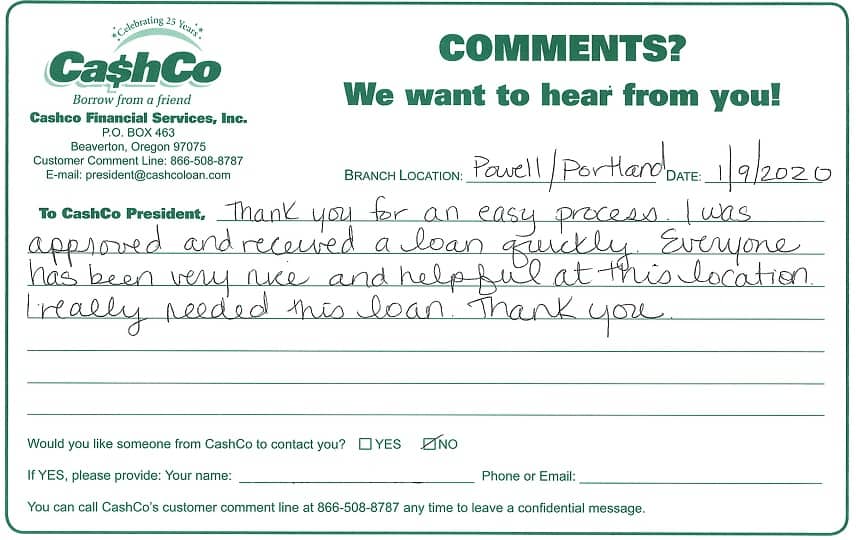 Celebrating 25 Years
Ca$hCo
Borrow from a friend
Cashco Financial Services, Inc.
P.O. BOX 463
Beaverton, Oregon 97075
Customer Comment Line: 866-508-8787
E-mail: president@cashcoloan.com
COMMENTS?
We want to hear from you!
BRANCH LOCATION: Powell/Portland DATE: 1/9/2020
To CashCo President, Thank you for an easy process. I was
approved and received a loan quickly. Everyone
has been very nice and helpful at this location.
I really needed this loan. Thank you.
Would you like someone from CashCo to contact you? ☐ YES ☑ NO
If YES, please provide: Your name: Phone or Email:
You can call CashCo's customer comment line at 866-508-8787 any time to leave a confidential message.